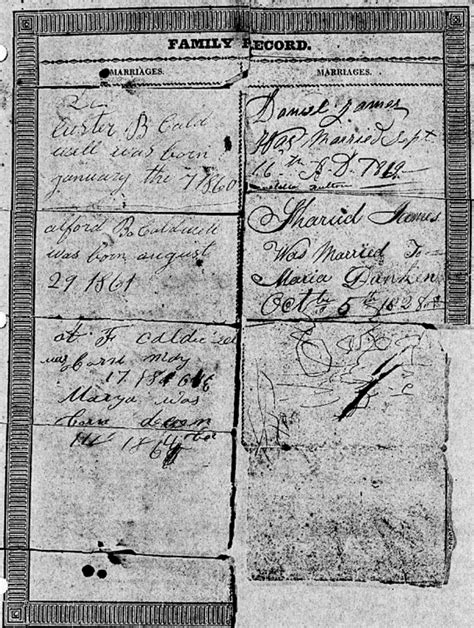 FAMILY RECORD.
MARRIAGES.
Custer B Cald
well was born
january the 7 1860
alford B Caldwell
was born august
29 1861
at F calduel
was born may
17 1866
Marya was
born decem
1864
MARRIAGES.
Daniel James
Was Married Sept
16th A.D. 1819
Fulton
Sharied James
Was Married To
Maria Dunken
Octbr 5th 1828